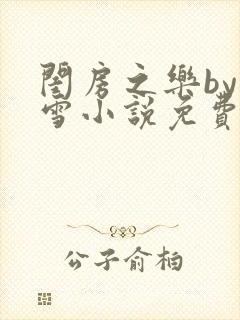 閨房之樂by
雪小說免費
公子俞柏